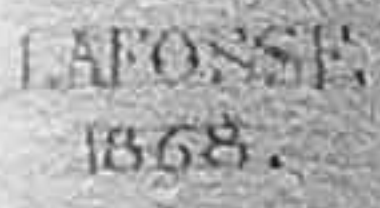 LAFONSE
1868.